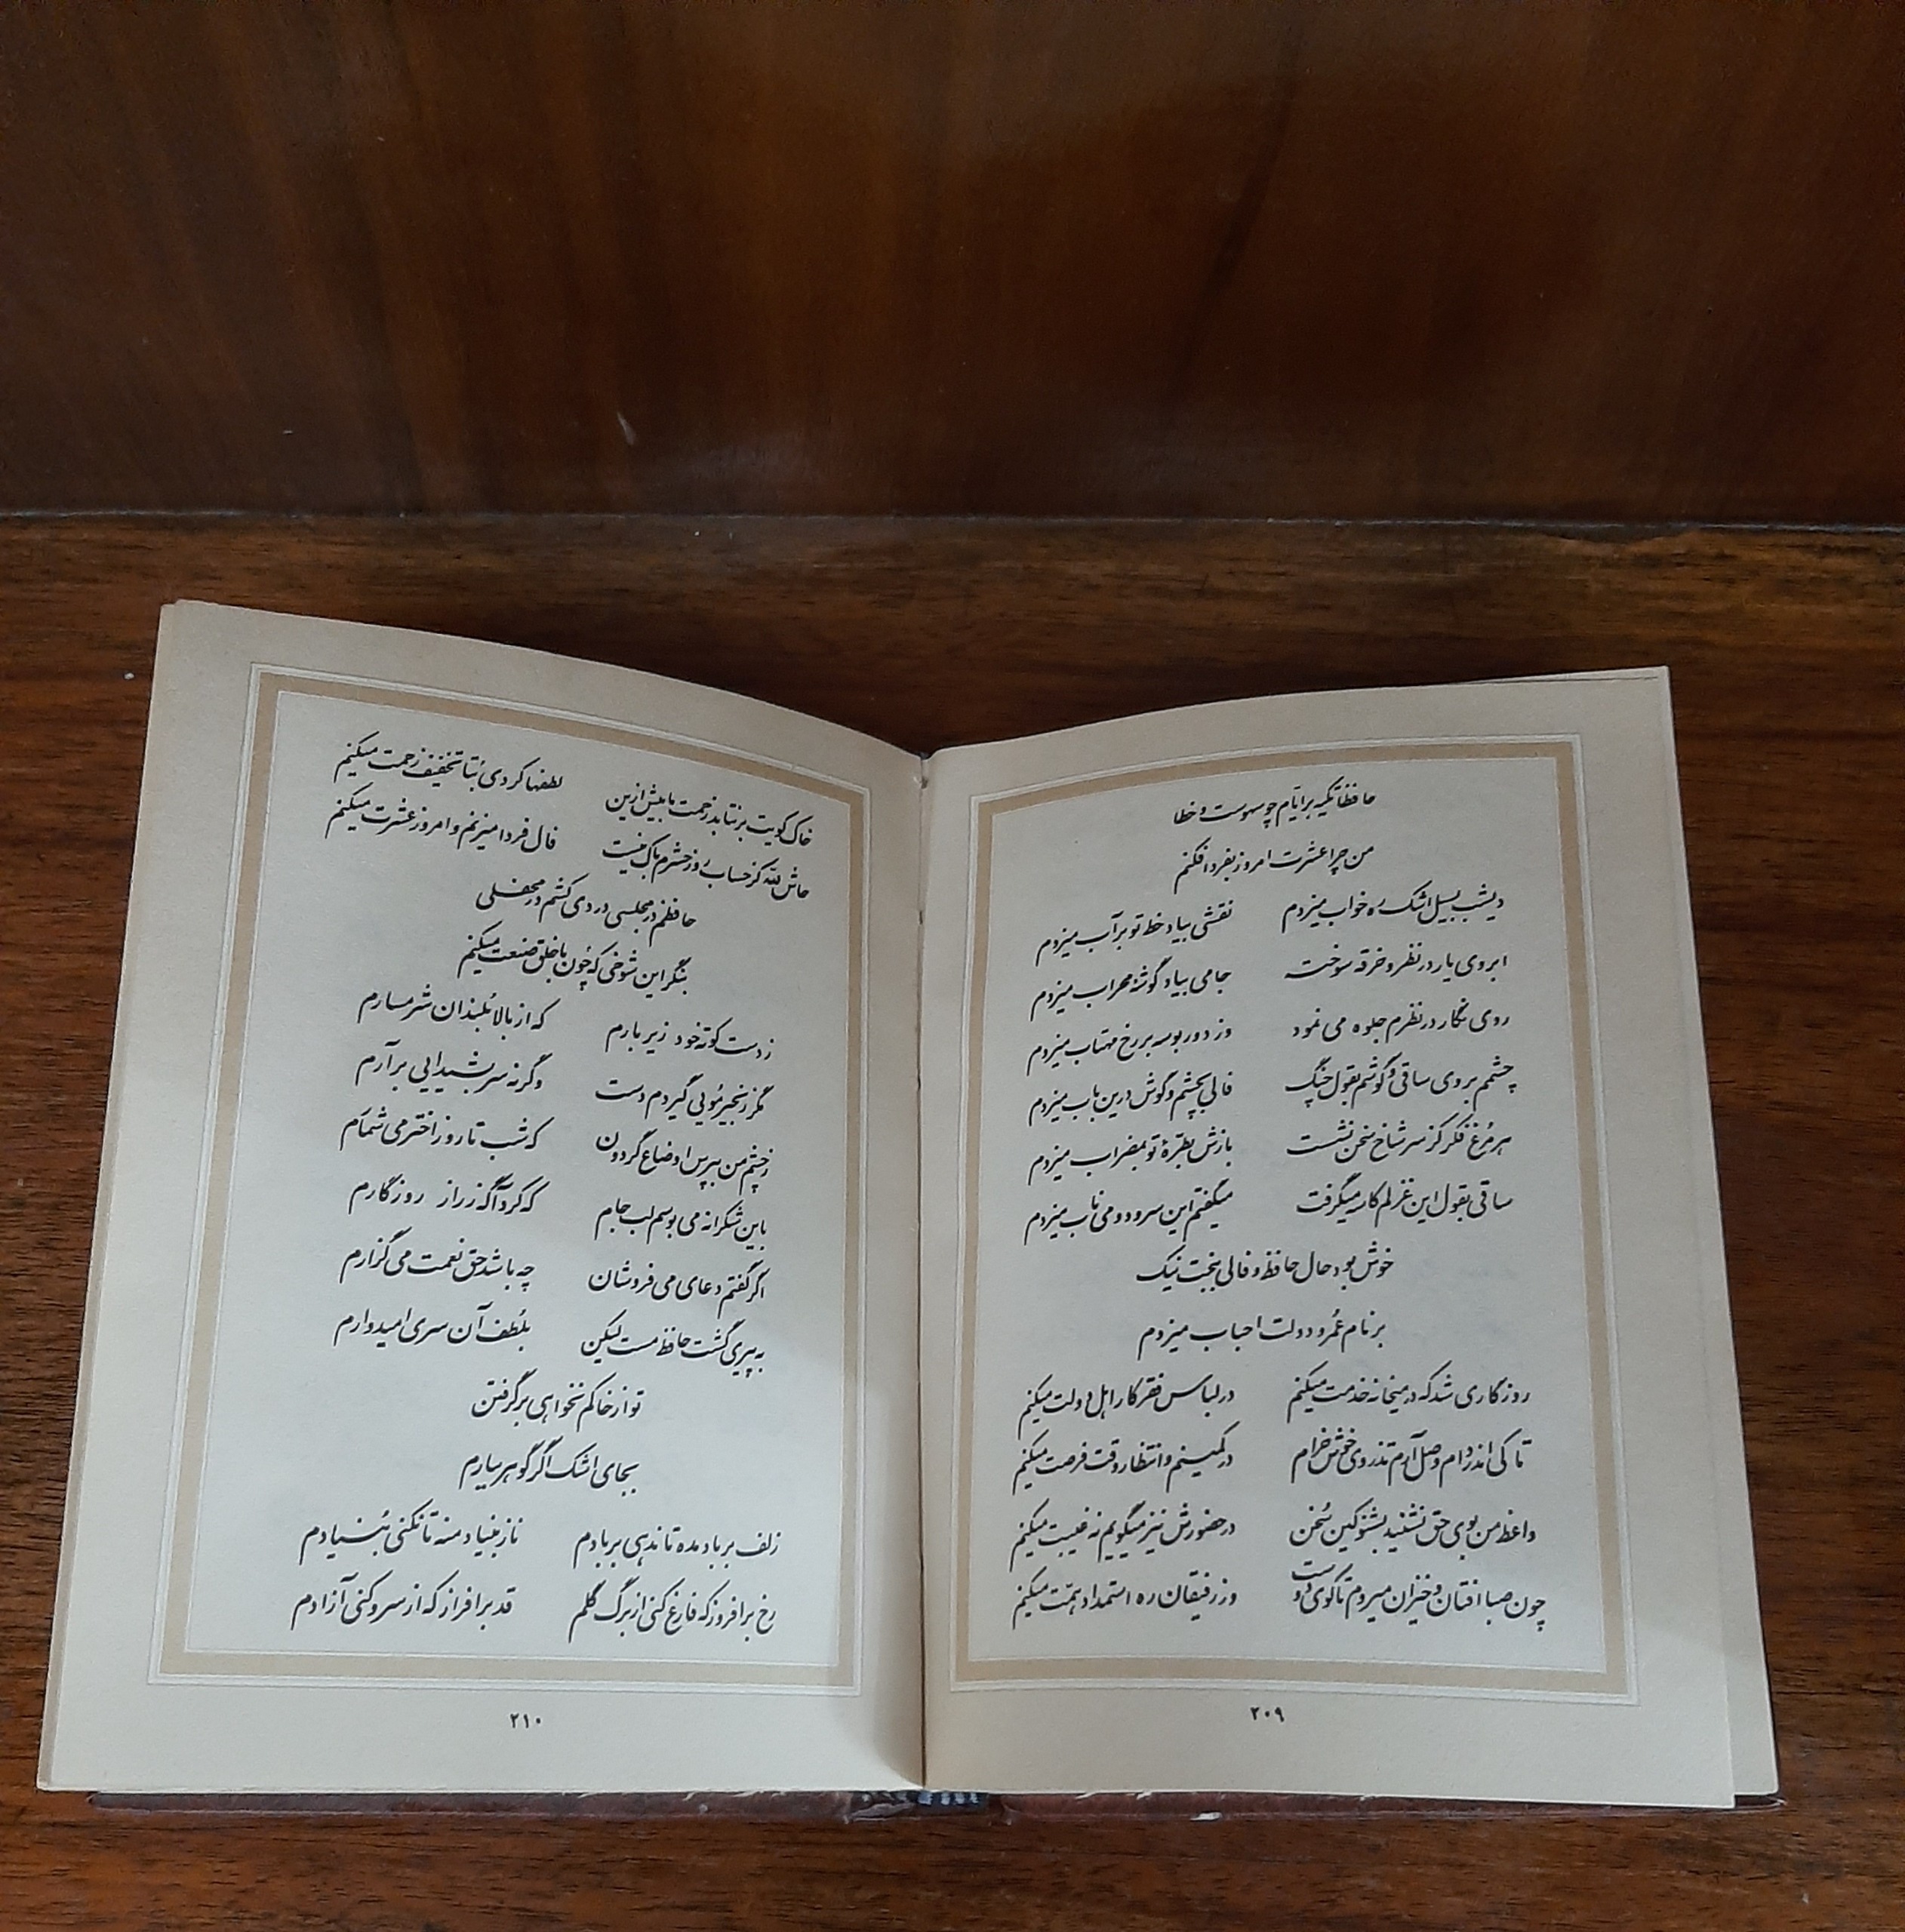 حافظا تکیه بر ایام چو سهوست و خطا
من چرا عشرت امروز بفردا فکنم
دیشب بسیل اشک ره خواب میزدم نقشی بیاد خط تو بر آب میزدم
ابروی یار در نظر و خرقه سوخته جامی بیاد گوشهٔ محراب میزدم
روی نگار در نظرم جلوه می نمود وز دور بوسه بر رخ مهتاب میزدم
چشمم بروی ساقی و گوشم بقول چنگ فالی بچشم و گوش درین باب میزدم
هر مُرغ فکر کز سر شاخ سخن نشست بازش بطرّهٔ تو بمضراب میزدم
ساقی بقول این غزلم کاسه میگرفت میگفتم این سرود و می ناب میزدم
خوش بود حال حافظ و فالی ببخت نیک
بر نام عُمر و دولت احباب میزدم
روزگاری شد که در میخانه خدمت میکنم در لباس فقر کار اهل دولت میکنم
تا کی اندر دام وصل آرم تذروی خوش خرام در کمینم و انتظار وقت فرصت میکنم
واعظ من بوی حق نشنید بشنو کین سُخن در حضورش نیز میگویم نه غیبت میکنم
چون صبا افتان و خیزان میروم تا کوی دوست وز رفیقان ره استمداد همّت میکنم
۲۰۹
خاک کویت برنتابد زحمت ما بیش ازین لطفها کردی بُتا تخفیف زحمت میکنم
حاش لله کز حساب روز حشرم باک نیست فال فردا میزنم و امروز عشرت میکنم
حافظم در مجلسی دردی کشم در محفلی
بنگر این شوخی که چُون با خلق صنعت میکنم
ز دست کوته خود زیر بارم که از بالا بُلبندان شرمسارم
مگر زنجیر مُویی گیردم دست وگرنه سر بشیدایی برآرم
ز چشم من بپرس اوضاع گردون که شب تا روز اختر می شمآرم
باین شکرانه می بوسم لب جام که کرد آگه ز راز روزگارم
اگر گفتم دعای می فروشان چه باشد حق نعمت می گزارم
به پیری گشت حافظ مست لیکن بلُطف آن سری امیدوارم
تو از خاکم نخواهی برگرفتن
بجای اشک اگر گوهر ببارم
زلف بر باد مده تا ندهی بر بادم ناز بنیاد منه تا نکنی بُنیادم
رخ برافروز که فارغ کنی از برگ گلم قد برافراز که از سرو کنی آزادم
۲۱۰